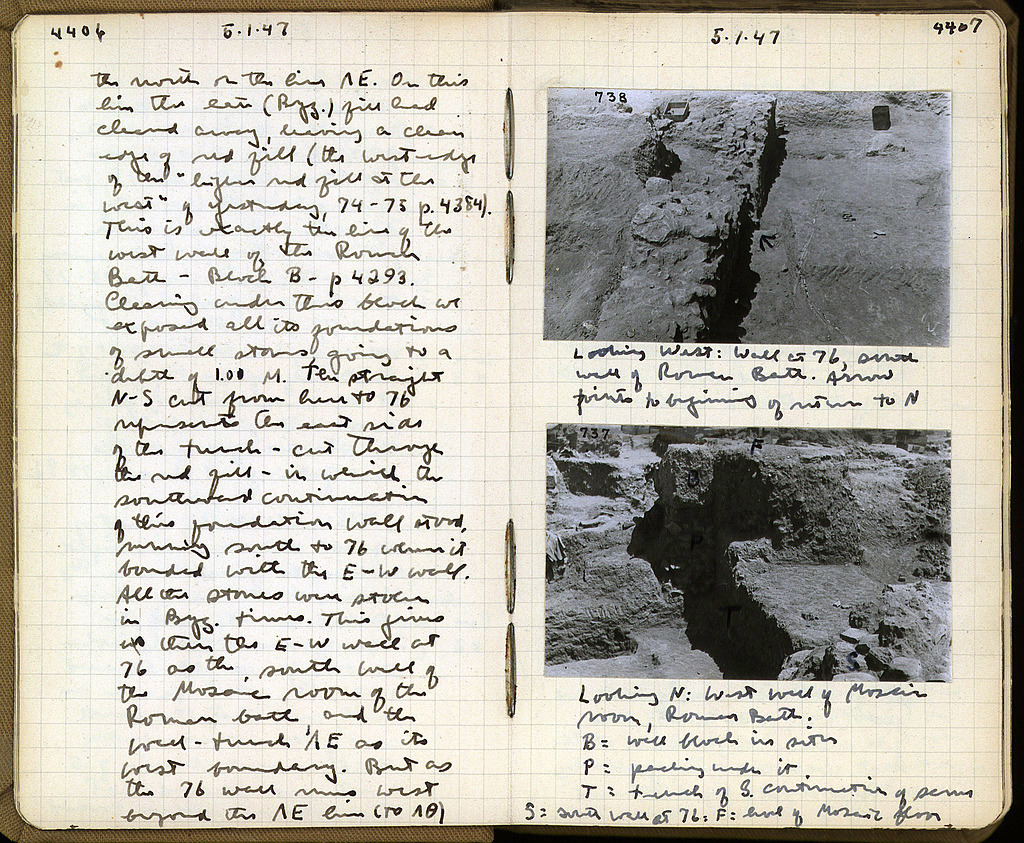 4406
5.1.47
the north on the line ΛE. On this
line the late (Byz.) fill had
cleared away, leaving a clean
edge of red fill (the west edge
of the "higher red fill at the
west" of yesterday, 74-75 p. 4384).
This is exactly the line of the
west wall of the Roman
Bath - Block B - p 4293.
Clearing under this block we
exposed all its foundations
of small stones, going to a
depth of 1.00 M. The straight
N-S cut from here to 76
represents the east side
of the trench - cut through
the red fill - in which the
southward continuation
of this foundation wall stood,
running south to 76 where it
bonded with the E-W wall.
All the stones were stolen
in Byz. times. This gives
us then the E-W wall at
76 as the south wall of
the Mosaic room of the
Roman bath, and the
wall-trench ΛE as its
west boundary. But as
the 76 wall runs west
beyond the ΛE line (to ΛΘ)
5.1.47
4407
738
Looking West: Wall at 76, south
wall of Roman Bath. Arrow
points to beginning of return to N
737
F
B
P
T
S
Looking N: West wall of Mosaic
room, Roman Bath.
B = wall block in situ
P = packing under it
T = trench of S. continuation of same
S = south wall at 76: F = level of Mosaic floor